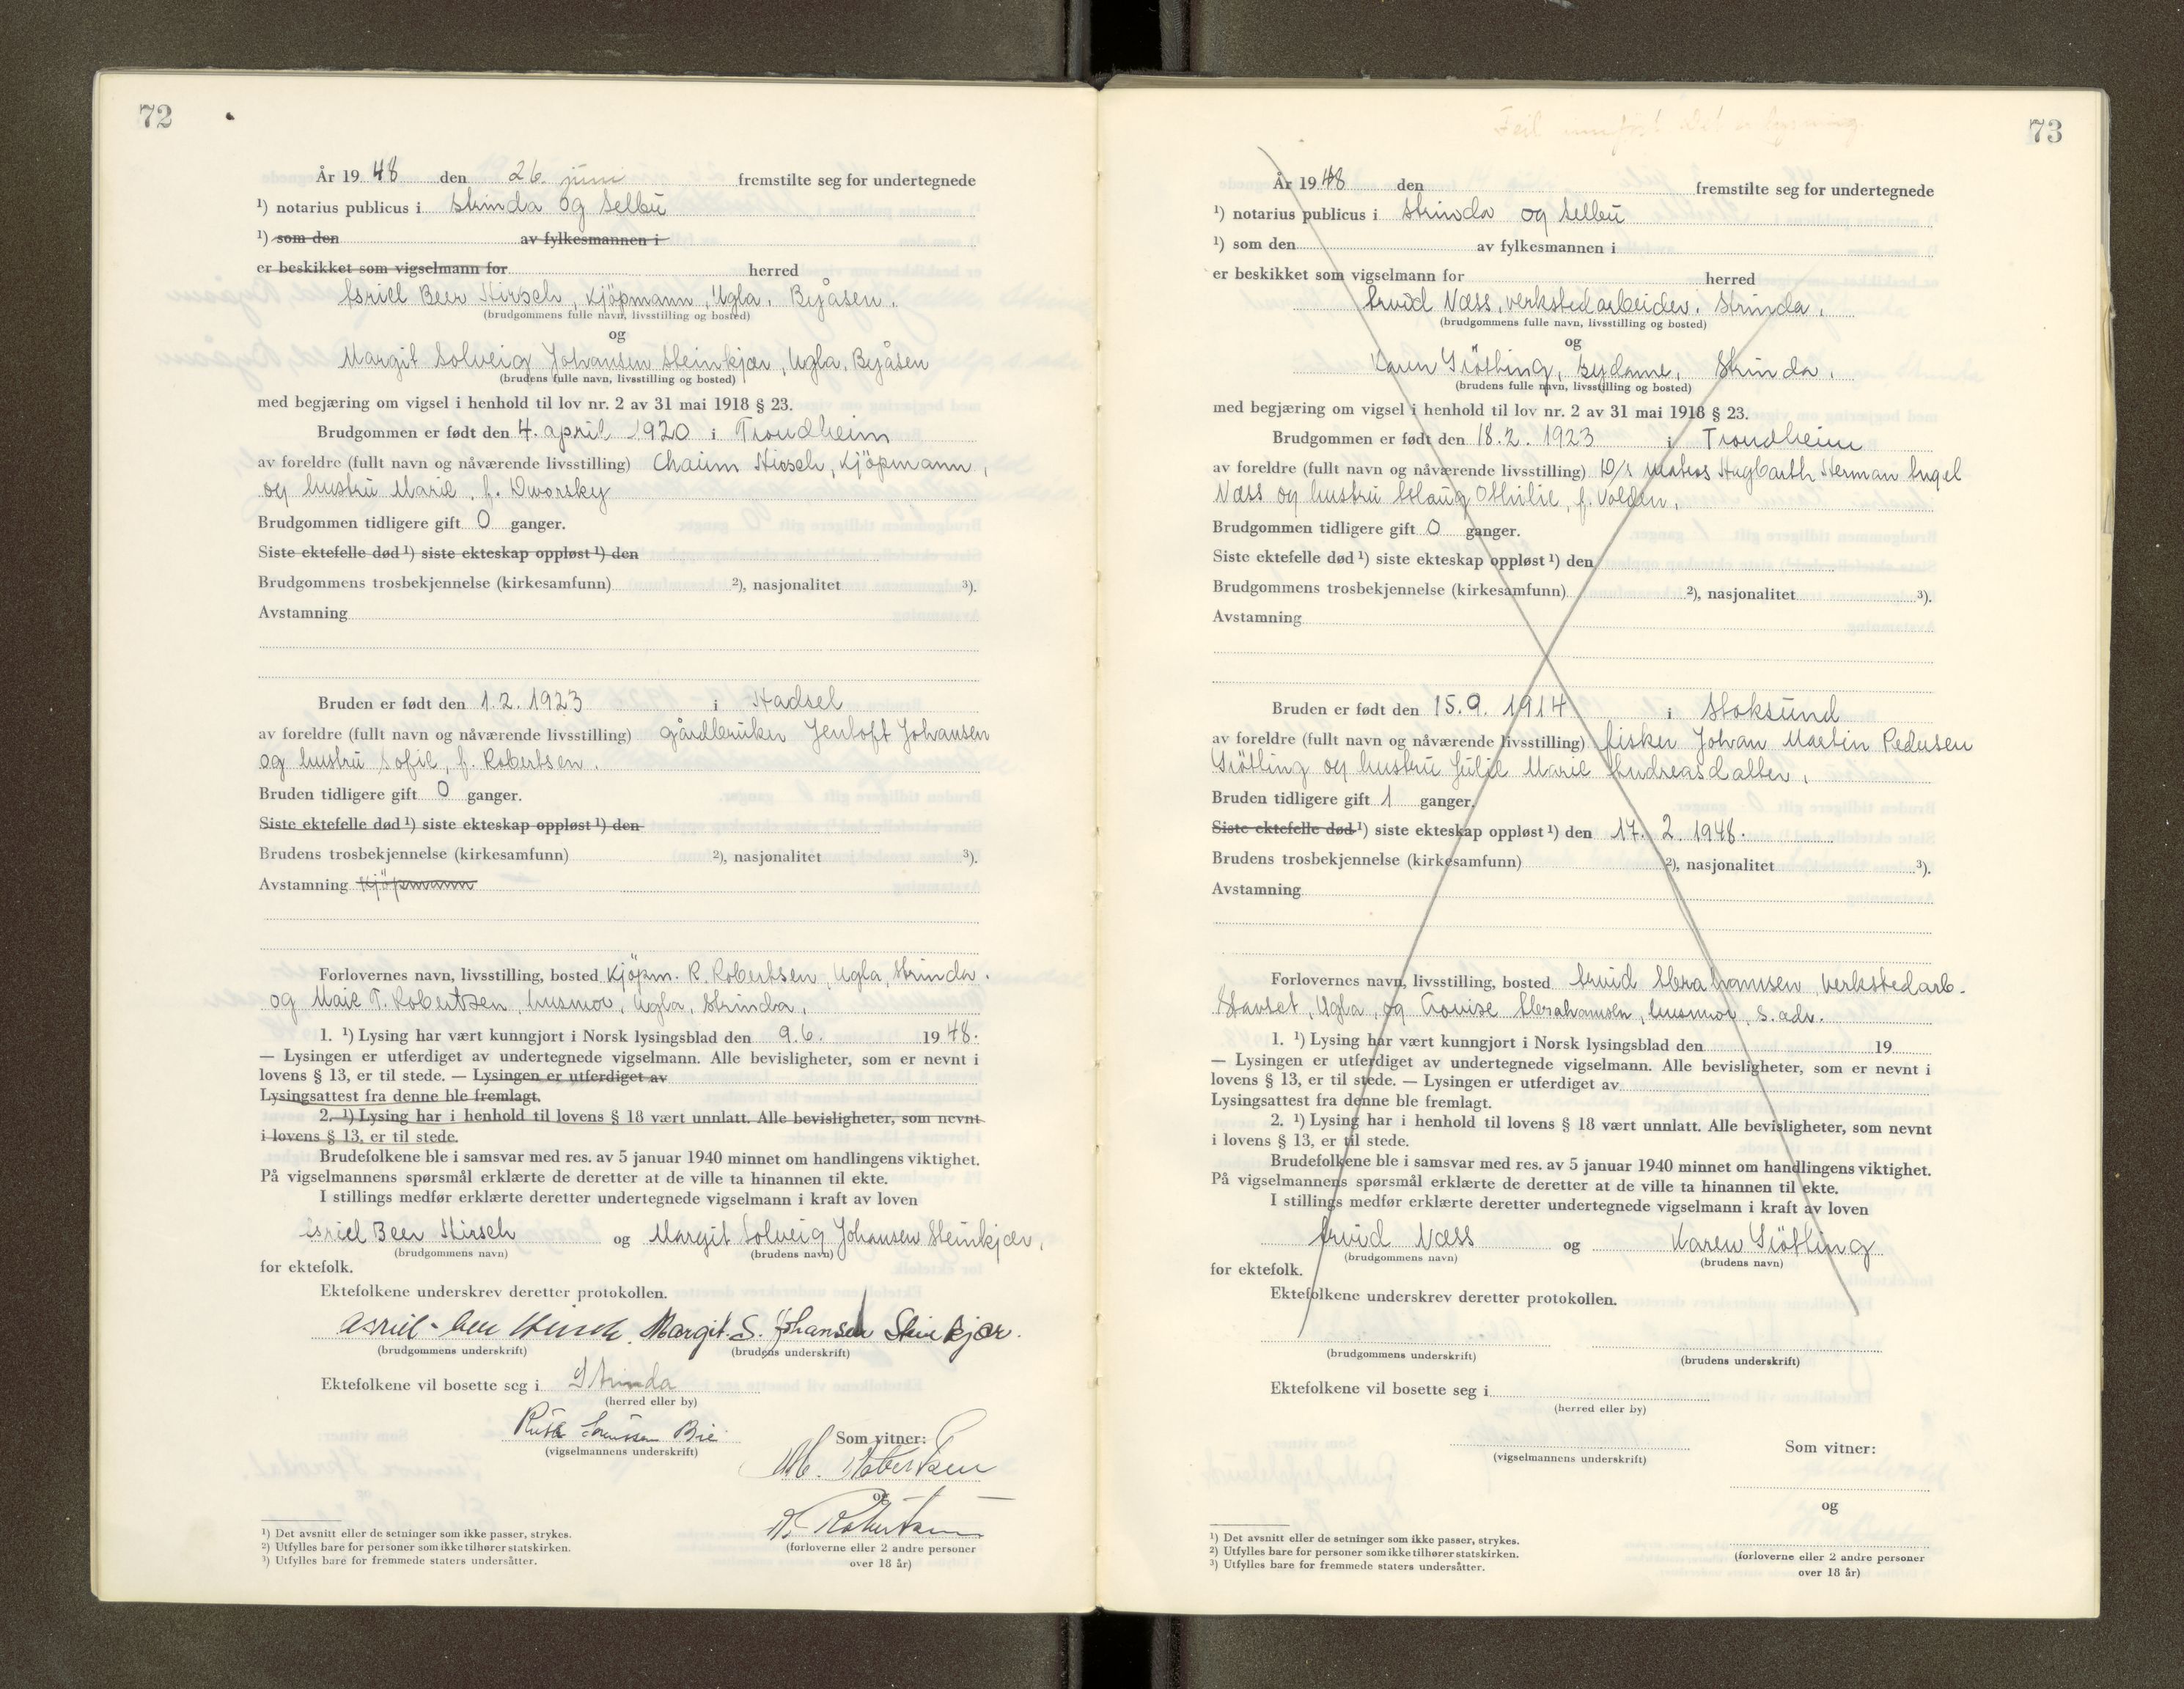 72
År 1948 den 26. juni fremstilte seg for undertegnede
¹) notarius publicus i Strinda og Selbu
¹) som den av fylkesmannen i
er beskikket som vigselmann for herred
Asriel Beer Hirsch, kjöpmann, Ugla, Byåsen.
(brudgommens fulle navn, livsstilling og bosted)
og
Margit Solveig Johansen Steinkjær, Ugla, Byåsen
(brudens fulle navn, livsstilling og bosted)
med begjæring om vigsel i henhold til lov nr. 2 av 31 mai 1918 § 23.
Brudgommen er født den 4. april 1920 i Trondheim
av foreldre (fullt navn og nåværende livsstilling) Chaim Hirsch, kjöpmann,
og hustru Marie, f. Dworsky
Brudgommen tidligere gift 0 ganger.
Siste ektefelle død ¹) siste ekteskap oppløst ¹) den
Brudgommens trosbekjennelse (kirkesamfunn) ²), nasjonalitet ³).
Avstamning
Bruden er født den 1.2.1923 i Hadsel
av foreldre (fullt navn og nåværende livsstilling) gårdbruker Jentoft Johansen
og hustru Sofie, f. Robertsen.
Bruden tidligere gift 0 ganger.
Siste ektefelle død ¹) siste ekteskap oppløst ¹) den
Brudens trosbekjennelse (kirkesamfunn) ²), nasjonalitet ³).
Avstamning kjöpmann
Forlovernes navn, livsstilling, bosted kjöpm. R. Robertsen, Ugla, Strinda.
og Maie T. Robertsen, husmor, Ugla, Strinda,
1. ¹) Lysing har vært kunngjort i Norsk lysingsblad den 9.6. 1948.
— Lysingen er utferdiget av undertegnede vigselmann. Alle bevisligheter, som er nevnt i
lovens § 13, er til stede. — Lysingen er utferdiget av
Lysingsattest fra denne ble fremlagt.
2. ¹) Lysing har i henhold til lovens § 18 vært unnlatt. Alle bevisligheter, som nevnt
i lovens § 13, er til stede.
Brudefolkene ble i samsvar med res. av 5 januar 1940 minnet om handlingens viktighet.
På vigselmannens spørsmål erklærte de deretter at de ville ta hinannen til ekte.
I stillings medfør erklærte deretter undertegnede vigselmann i kraft av loven
Asriel Beer Hirsch og Margit Solveig Johansen Steinkjær,
(brudgommens navn) (brudens navn)
for ektefolk.
Ektefolkene underskrev deretter protokollen.
Asriel Beer Hirsch. Margit. S. Johansen Steinkjær.
(brudgommens underskrift) (brudens underskrift)
Ektefolkene vil bosette seg i Strinda
(herred eller by)
Bie
(vigselmannens underskrift)
Som vitner:
M. Robertsen
og
R. Robertsen
(forloverne eller 2 andre personer
over 18 år)
¹) Det avsnitt eller de setninger som ikke passer, strykes.
²) Utfylles bare for personer som ikke tilhører statskirken.
³) Utfylles bare for fremmede staters undersåtter.
73
Feil innført. Det er lysning.
År 1948 den fremstilte seg for undertegnede
¹) notarius publicus i Strinda og Selbu
¹) som den av fylkesmannen i
er beskikket som vigselmann for herred
Arvid Næss, verkstedarbeider, Strinda,
(brudgommens fulle navn, livsstilling og bosted)
og
Karen Gjötling, sydame, Strinda,
(brudens fulle navn, livsstilling og bosted)
med begjæring om vigsel i henhold til lov nr. 2 av 31 mai 1918 § 23.
Brudgommen er født den 18.2.1923 i Trondheim
av foreldre (fullt navn og nåværende livsstilling) D/s matros Hagbarth Herman Angel
Næss og hustru Aslaug Othilie, f. Volden,
Brudgommen tidligere gift 0 ganger.
Siste ektefelle død ¹) siste ekteskap oppløst ¹) den
Brudgommens trosbekjennelse (kirkesamfunn) ²), nasjonalitet ³).
Avstamning
Bruden er født den 15.9.1914 i Stoksund
av foreldre (fullt navn og nåværende livsstilling) fisker Johan Martin Pedersen
Gjötling og hustru Julie Marie Andreasdatter,
Bruden tidligere gift 1 ganger.
Siste ektefelle død ¹) siste ekteskap oppløst ¹) den 17. 2. 1948.
Brudens trosbekjennelse (kirkesamfunn) ²), nasjonalitet ³).
Avstamning
Forlovernes navn, livsstilling, bosted Arvid Abrahamsen, verkstedarb.
Stavset, Ugla, og Lovise Abrahamsen, husmor, s. adr.
1. ¹) Lysing har vært kunngjort i Norsk lysingsblad den 19
— Lysingen er utferdiget av undertegnede vigselmann. Alle bevisligheter, som er nevnt i
lovens § 13, er til stede. — Lysingen er utferdiget av
Lysingsattest fra denne ble fremlagt.
2. ¹) Lysing har i henhold til lovens § 18 vært unnlatt. Alle bevisligheter, som nevnt
i lovens § 13, er til stede.
Brudefolkene ble i samsvar med res. av 5 januar 1940 minnet om handlingens viktighet.
På vigselmannens spørsmål erklærte de deretter at de ville ta hinannen til ekte.
I stillings medfør erklærte deretter undertegnede vigselmann i kraft av loven
Arvid Næss og Karen Gjötling
(brudgommens navn) (brudens navn)
for ektefolk.
Ektefolkene underskrev deretter protokollen.
(brudgommens underskrift) (brudens underskrift)
Ektefolkene vil bosette seg i
(herred eller by)
(vigselmannens underskrift)
Som vitner:
og
(forloverne eller 2 andre personer
over 18 år)
¹) Det avsnitt eller de setninger som ikke passer, strykes.
²) Utfylles bare for personer som ikke tilhører statskirken.
³) Utfylles bare for fremmede staters undersåtter.